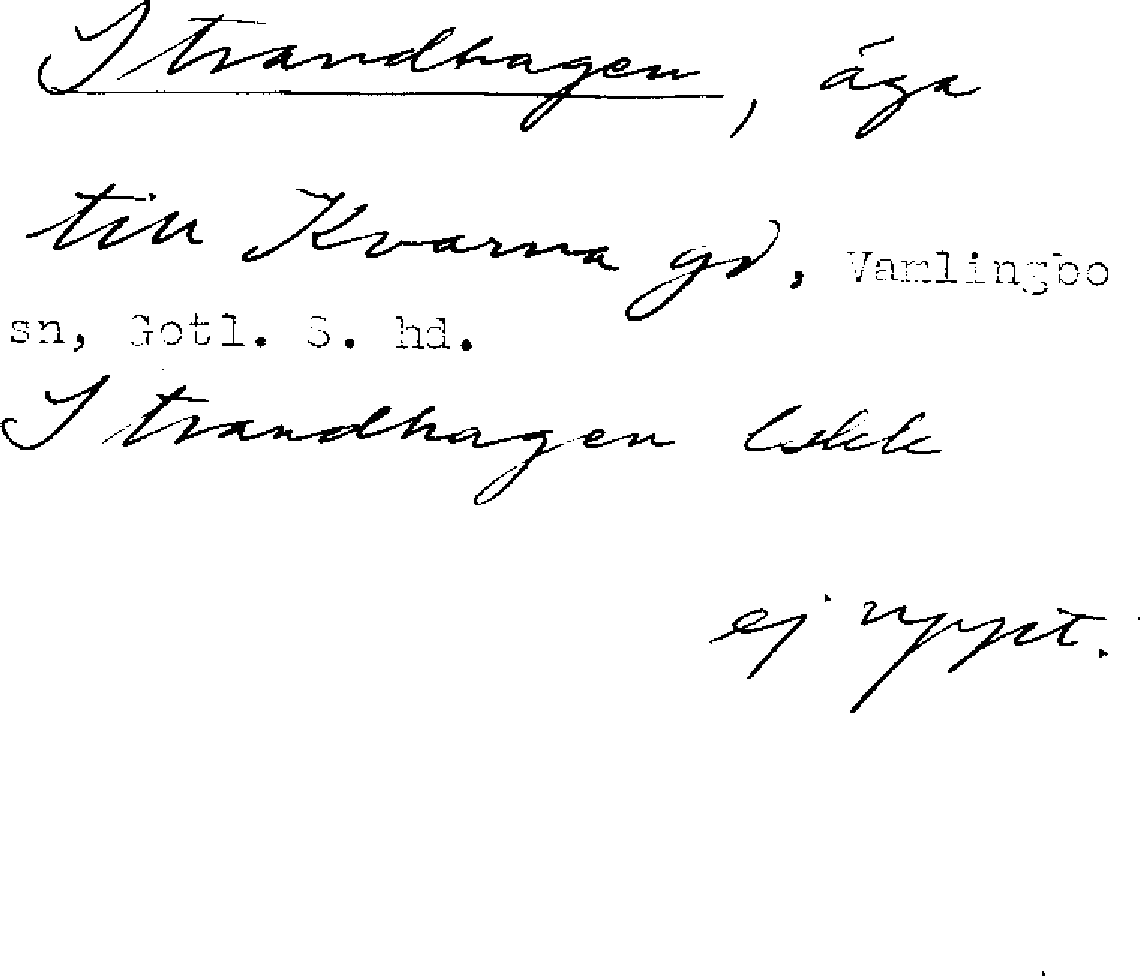 Strandhagen, äga
till Kvarna gd, Vamlingbo
sn, Gotl. S. hd.
Strandhagen Lskk
ej uppt.